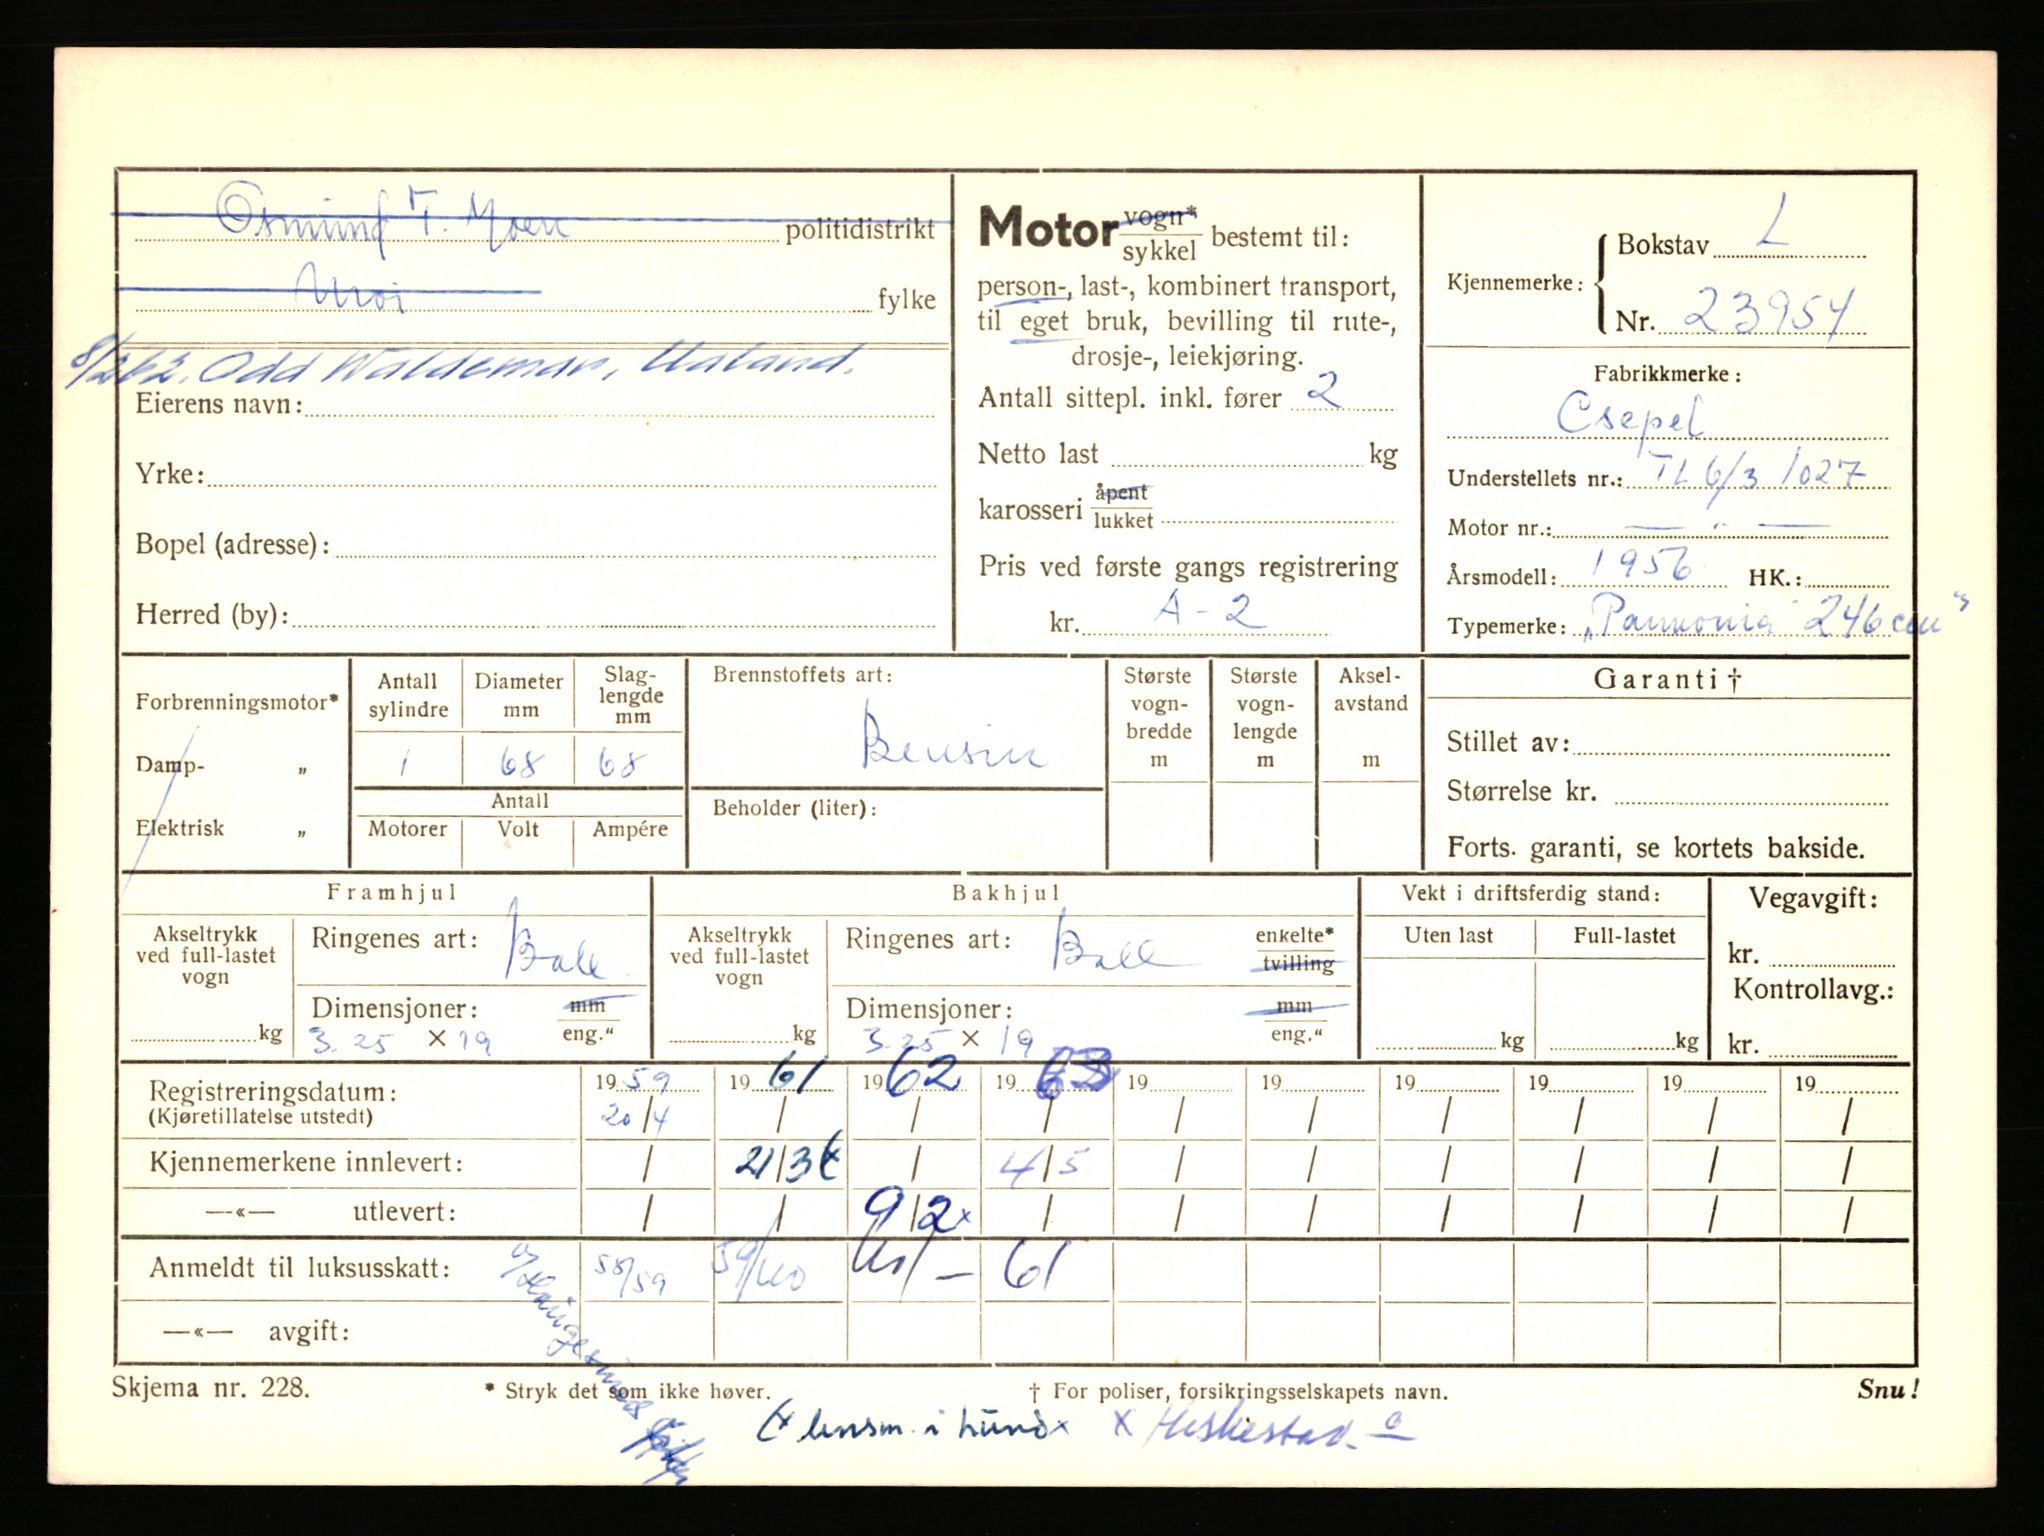 Osmund T. Moen politidistrikt
Moi fylke
8/2 62. Odd Waldemar, Ualand.
Eierens navn:
Yrke:
Bopel (adresse):
Herred (by):
Motor vogn* / sykkel bestemt til:
person-, last-, kombinert transport,
til eget bruk, bevilling til rute-,
drosje-, leiekjøring.
Antall sittepl. inkl. fører 2
Netto last kg
karosseri åpent / lukket
Pris ved første gangs registrering
kr. A-2
Kjennemerke: Bokstav L
Nr. 23954
Fabrikkmerke:
Csepel
Understellets nr.: TL 6/3 1027
Motor nr.: — „ —
Årsmodell: 1956 HK.:
Typemerke: „Pannonia" 246 cm³
Forbrenningsmotor*
Damp- „
Elektrisk „
Antall sylindre Diameter mm Slaglengde mm
1 68 68
Antall
Motorer Volt Ampére
Brennstoffets art:
Bensin
Beholder (liter):
Største vogn-bredde m
Største vogn-lengde m
Aksel-avstand m
Garanti †
Stillet av:
Størrelse kr.
Forts. garanti, se kortets bakside.
Framhjul
Akseltrykk ved full-lastet vogn
kg
Ringenes art: Ball
Dimensjoner: mm / eng.“
3.25 × 19
Bakhjul
Akseltrykk ved full-lastet vogn
kg
Ringenes art: Ball enkelte* / tvilling
Dimensjoner: mm / eng.“
3.25 × 19
Vekt i driftsferdig stand:
Uten last Full-lastet
kg kg
Vegavgift:
kr.
Kontrollavg.:
kr.
Registreringsdatum: 1959 1961 1962 1963 19 19 19 19 19 19
(Kjøretillatelse utstedt) 20/4 / / / / / / / / /
Kjennemerkene innlevert: / 2/3 / 4/5 / / / / / /
—«— utlevert: / / 9/2 x / / / / / / /
Anmeldt til luksusskatt: 58/59 59/60 — 61
—«— avgift:
Skjema nr. 228. * Stryk det som ikke høver. † For poliser, forsikringsselskapets navn. Snu!
lensm. i Lund x x Heskestad